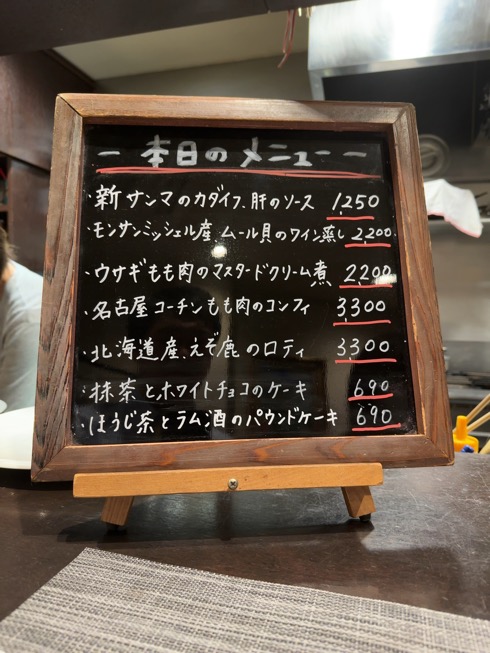 ー本日のメニューー
・新サンマのカダイフ、肝のソース 1,250
・モンサンミッシェル産 ムール貝のワイン蒸し 2,200
・ウサギもも肉のマスタードクリーム煮 2,200
・名古屋コーチンもも肉のコンフィ 3,300
・北海道産、えぞ鹿のロティ 3,300
・抹茶とホワイトチョコのケーキ 690
・ほうじ茶とラム酒のパウンドケーキ 690